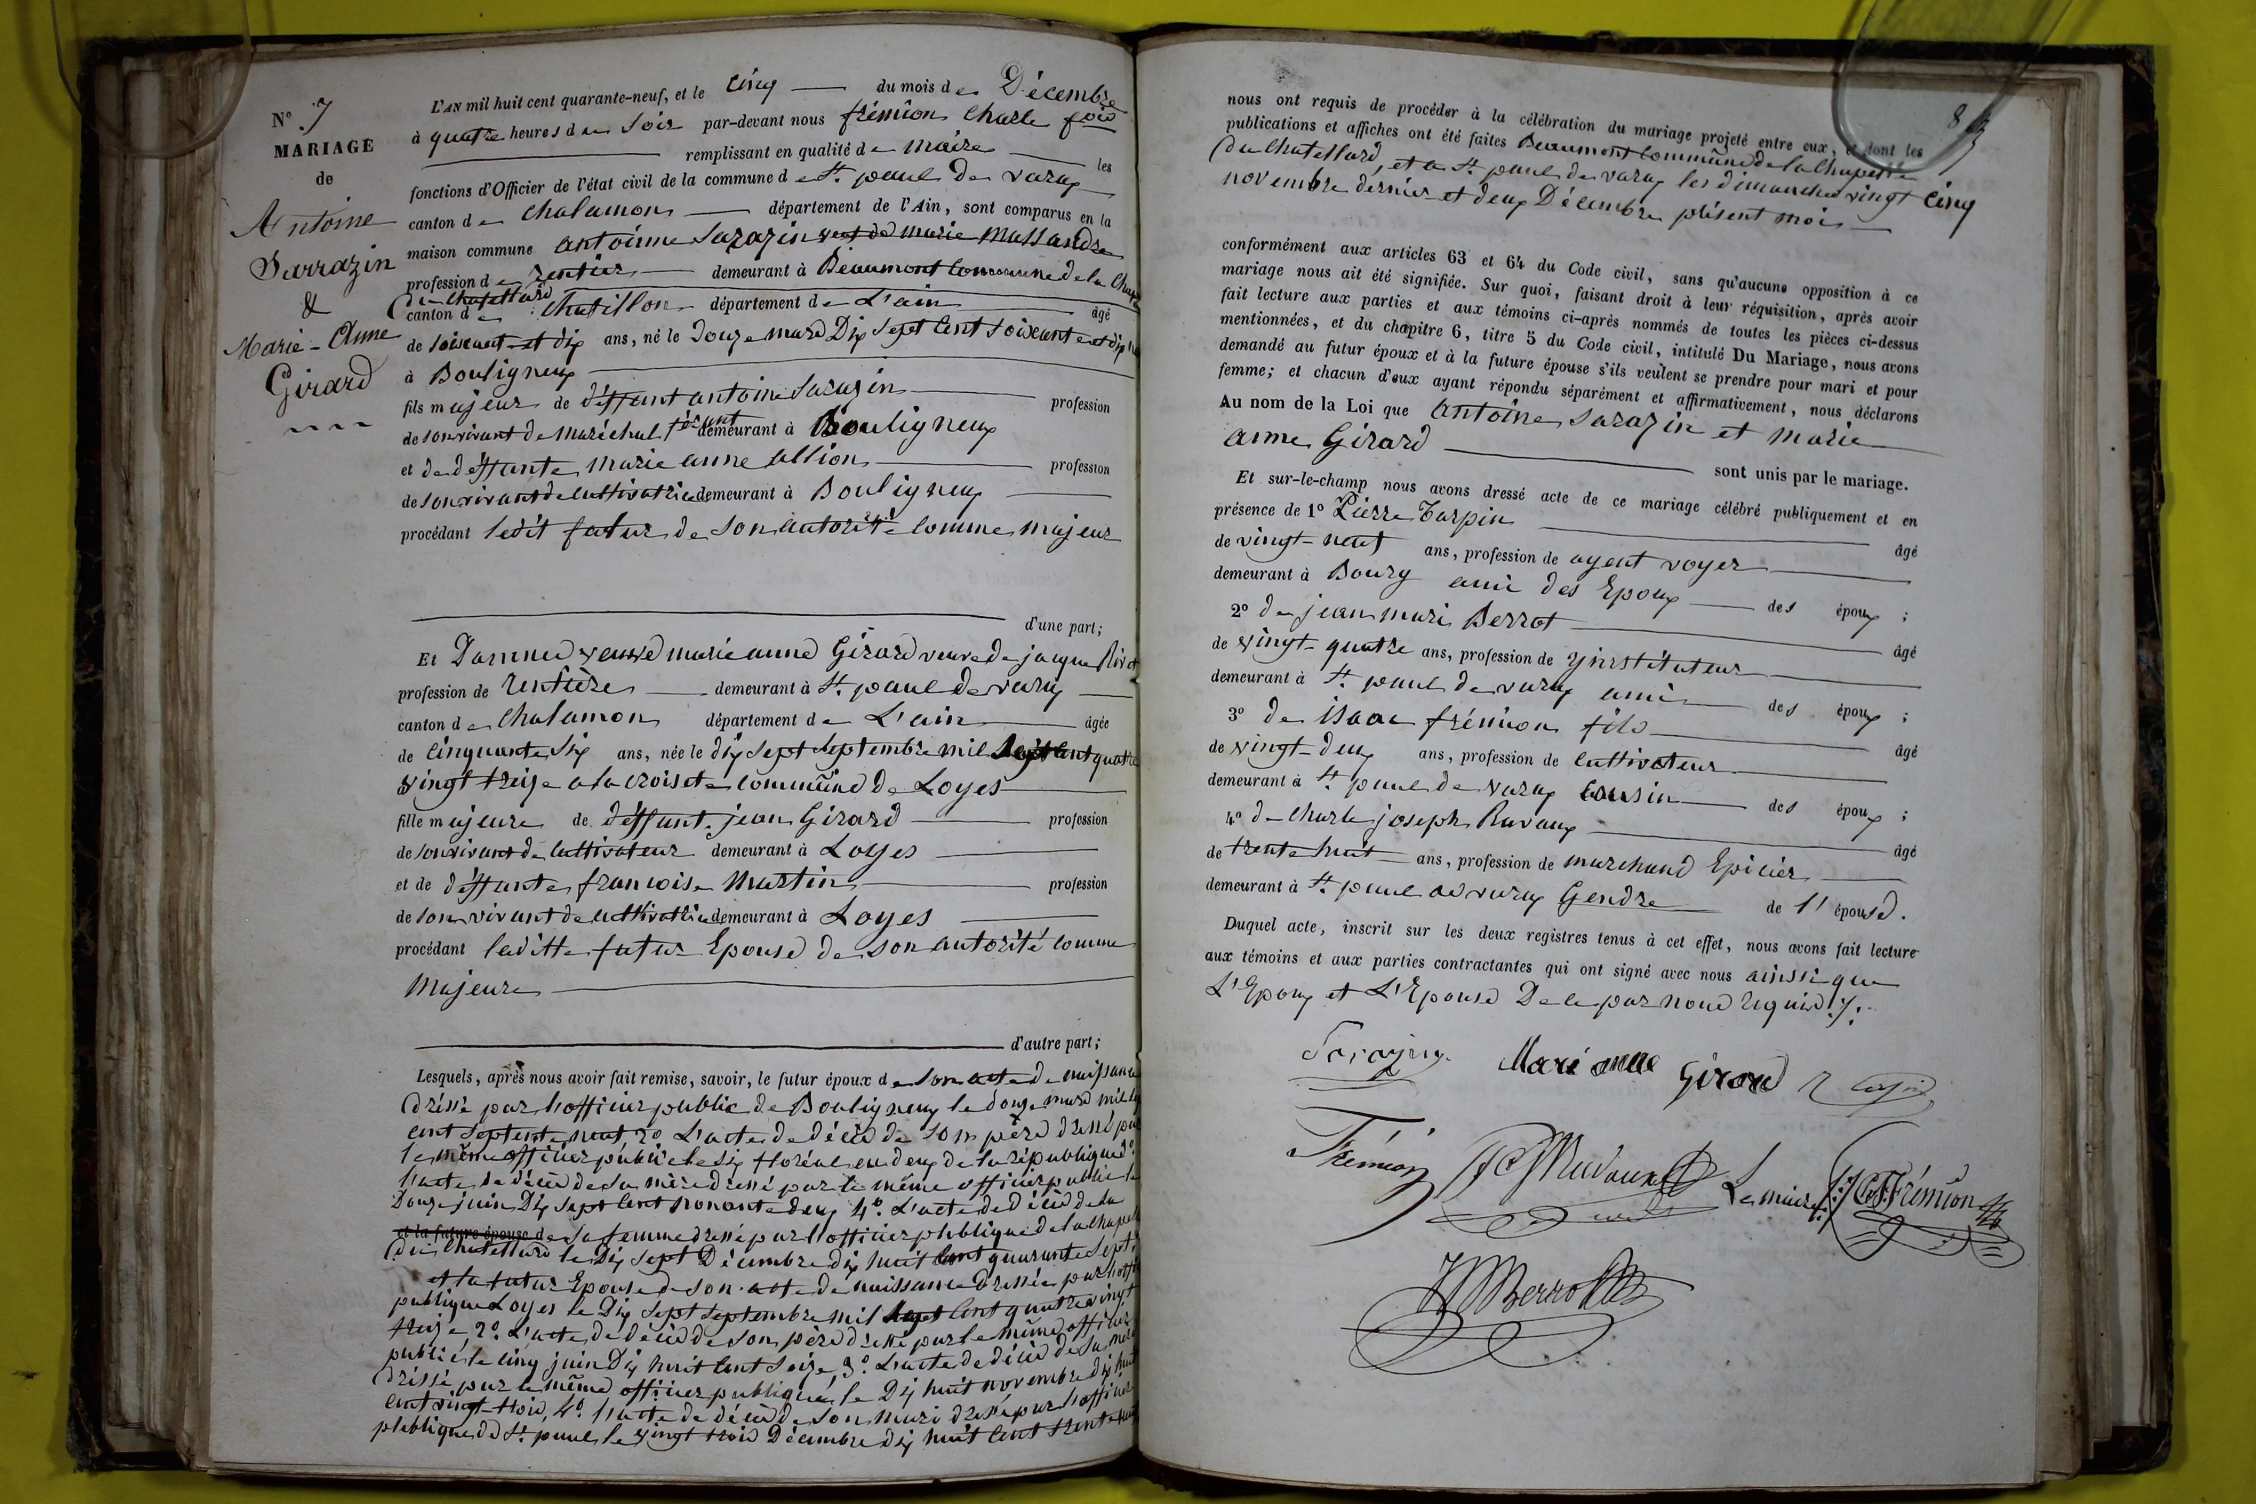 N° 7
MARIAGE
de
Antoine
Sarrazin
&
Marie-Anne
Girard
L'AN mil huit cent quarante-neuf, et le cinq du mois de Décembre
à quatre heures du soir par-devant nous frémion Charle fois
remplissant en qualité de maire les
fonctions d'Officier de l'état civil de la commune de St. paul de varax
canton de Chalamon département de l'Ain, sont comparus en la
maison commune antoinne Sarazin veuf de marie Massandre
profession de rentier demeurant à Beaumont commune de la Chapelle
du Chatellard
canton de Chatillon département de L'ain âgé
de soixante et dix ans, né le Douze mars Dix sept cent soixante et dix neuf
à Bouligneux
fils majeur de déffunt antoine Sarazin profession
de son vivant de maréchal férant demeurant à Bouligneux
et de déffunte marie anne allion profession
de son vivant de cultivatrice demeurant à Bouligneux
procédant ledit futur de son autorité comme majeur
d'une part;
Et Damme veuve marie anne Girard veuve de jaque Rivet
profession de rentiere demeurant à St. paul de varax
canton de Chalamon département de L'ain âgée
de cinquante six ans, née le dix sept septembre mil sept cent quatre
vingt treize a la croisete commune de Loyes
fille majeure de déffunt jean Girard profession
de son vivant de cultivateur demeurant à Loyes
et de déffunte francoise Martin profession
de son vivant de cultivatrice demeurant à Loyes
procédant laditte futur Epouse de son autorité comme
Majeure
d'autre part;
Lesquels, après nous avoir fait remise, savoir, le futur époux de son acte de naissance
dréssé par l'officier public de Bouligneux le douze mars mil sept
cent septente neuf, 2° L'acte de décès de son père dressé par
le même officier public le six floréal en deux de la république 3°
l'acte de décès de sa mère dressé par le même officier public le
Douze juin Dix sept cent nonante deux 4° L'acte de décès de la
et la future épouse de sa femme dressé par l'officier publique de la chapelle
du Chatellard le Dix sept Décembre dix huit cent quarante sept.
et la futur Epouse de son acte de naissance dressée par l'officier
publique Loyes le Dix sept septembre mil sept cent quatre vingt
treize 2° L'acte de décès de son père dressé par le même officier
public le cinq juin Dix huit cent seize 3° L'acte de décès de sa mère
dréssé par le même officier publique le Dix huit novembre dix huit
cent vingt trois, 4° l'acte de décès de son mari dressé par l'officier
publique de St. paul le vingt trois Décembre dix huit cent trente
8
nous ont requis de procéder à la célébration du mariage projeté entre eux, et dont les
publications et affiches ont été faites Beaumont commune de la Chapelle
du Chatellard, et a St. paul de varax les dimanches vingt cinq
novembre dernier et deux Décembre présent mois
conformément aux articles 63 et 64 du Code civil, sans qu'aucune opposition à ce
mariage nous ait été signifiée. Sur quoi, faisant droit à leur réquisition, après avoir
fait lecture aux parties et aux témoins ci-après nommés de toutes les pièces ci-dessus
mentionnées, et du chapitre 6, titre 5 du Code civil, intitulé Du Mariage, nous avons
demandé au futur époux et à la future épouse s'ils veulent se prendre pour mari et pour
femme; et chacun d'eux ayant répondu séparément et affirmativement, nous déclarons
Au nom de la Loi que antoine Sarazin et marie
anne Girard
sont unis par le mariage.
Et sur-le-champ nous avons dressé acte de ce mariage célébré publiquement et en
présence de 1° Pierre Turpin âgé
de vingt-neuf ans, profession de agent voyer
demeurant à Bourg ami des Epoux des époux ;
2° de jean mari Berrot âgé
de vingt-quatre ans, profession de ynstituteur
demeurant à St. paul de varax ami des époux ;
3° de isaac frémion fils âgé
de vingt-deux ans, profession de cultivateur
demeurant à St. paul de varax cousin des époux ;
4° de charle joseph Ravaux âgé
de trente huit ans, profession de marchand Epicier
demeurant à St. paul de varax Gendre de l'épouse.
Duquel acte, inscrit sur les deux registres tenus à cet effet, nous avons fait lecture
aux témoins et aux parties contractantes qui ont signé avec nous ainsi que
L'Epoux et L'Epouse De ce par nous requis
Sarazin Marie anne Girard
Frémion Le maire Frémion
Berrot